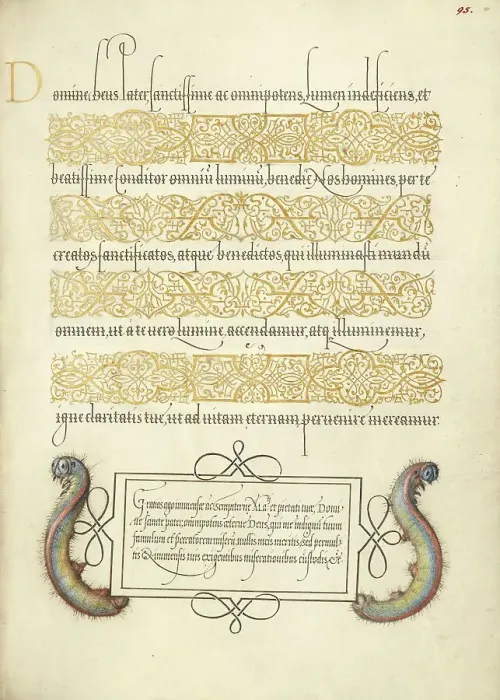 95.
Domine, Deus Pater, sanctissime ac omnipotens, Lumen indeficiens, et
beatissime conditor omniū luminū, benedic Nos homines, per te
creatos, sanctificatos, atque benedictos, qui illuminasti mundū
omnem, ut a te vero Lumine accendamur, atq illuminemur,
igne claritatis tue, ut ad vitam eternam pervenire mereamur.
Gratias ago immensæ ac sempiternæ Mati et pietati tuæ, Domi-
ne sancte pater, omnipotens æterne Deus, qui me indignū tuum
famulum et peccatorem miserū, nullis meis meritis, sed permul-
tis Et immensis tuis exigentibus miserationibus custodis,